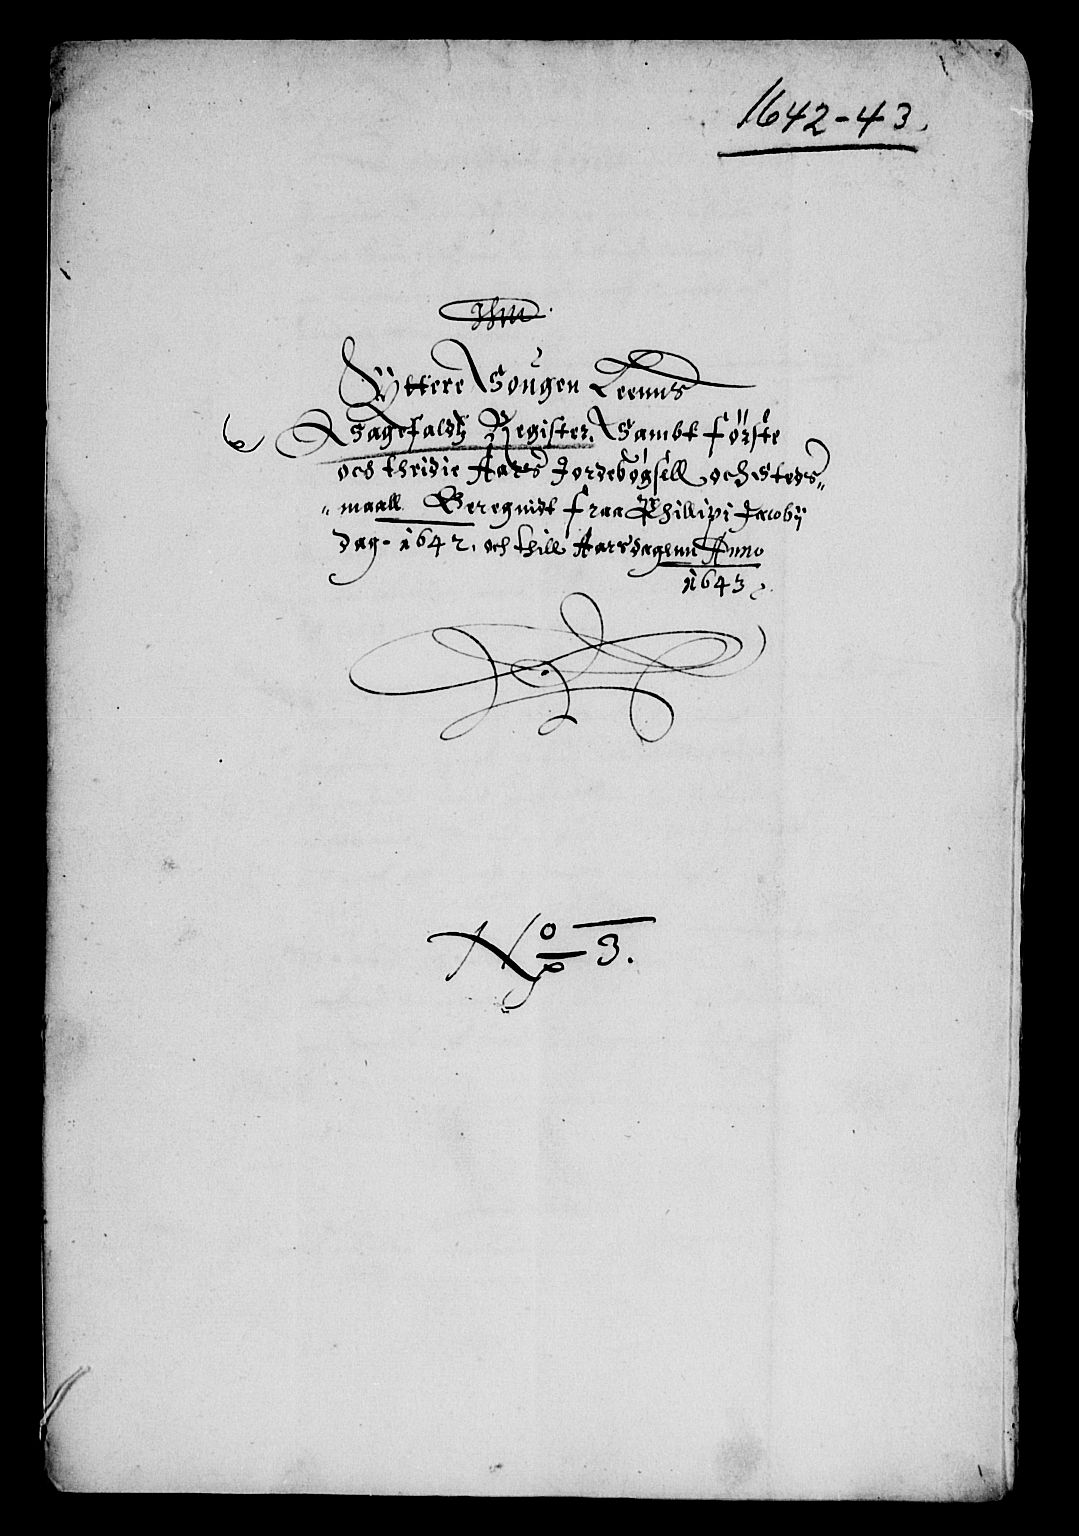 1642-43.
Ihm.
Ÿttere Sougen Leenns
Sagefaldtz Register, Sambt første
och thridie Aars Jordebogsell och Steds„
„maall Beregnidt fraa Phillipi Jacobÿ
dag- 1642, och thill Aarsdagenn Anno
1643
No 3.